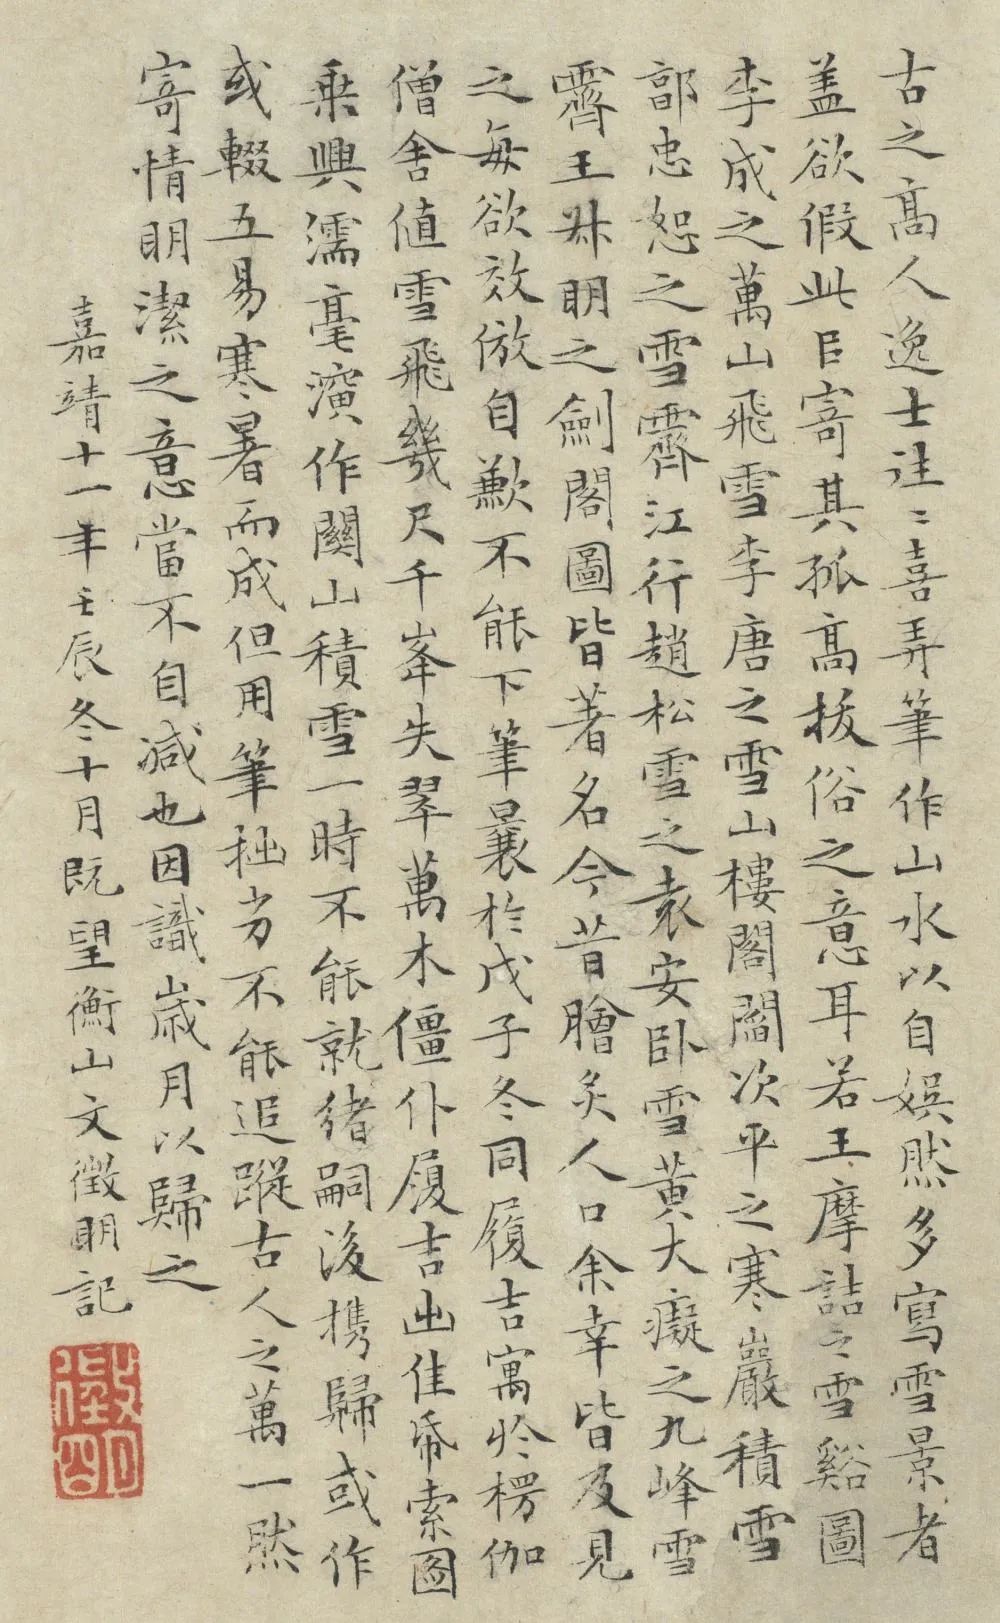 古之高人逸士往〻喜弄筆作山水以自娱然多寫雪景者
盖欲假此㠯寄其孤高拔俗之意耳若王摩詰之雪谿圖
李成之萬山飛雪李唐之雪山樓閣閻次平之寒巖積雪
郭忠恕之雪霽江行趙松雪之袁安卧雪黄大癡之九峰雪
霽王叔明之劍閣圖皆著名今昔膾炙人口余幸皆及見
之每欲效倣自歉不能下筆曩於戊子冬同履吉寓於楞伽
僧舍值雪飛幾尺千峯失翠萬木僵仆履吉出佳帋索圖
乗興濡毫演作關山積雪一時不能就緒嗣後携歸或作
或輟五易寒暑而成但用筆拙劣不能追蹤古人之萬一然
寄情明潔之意當不自減也因識歲月以歸之
嘉靖十一年壬辰冬十月既望衡山文徵明記
徵明